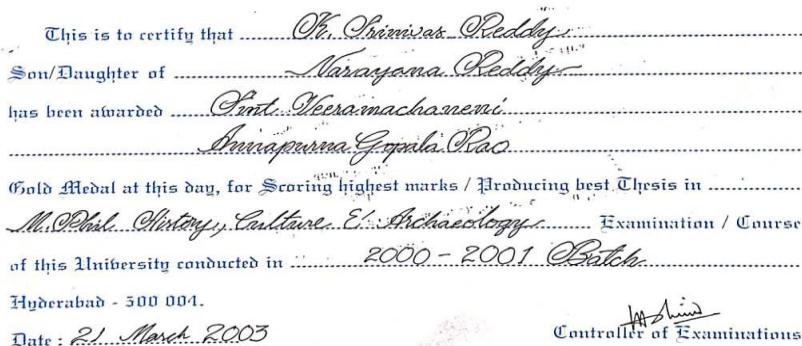 This is to certify that K. Srinivas Reddy
Son/Daughter of Narayana Reddy
has been awarded Smt. Veeramachaneni
Annapurna Gopala Rao
Gold Medal at this day, for Scoring highest marks / Producing best Thesis in
M.Phil History, Culture & Archaeology Examination / Course
of this University conducted in 2000 - 2001 Batch
Hyderabad - 500 004.
Date : 21 March 2003 Controller of Examinations